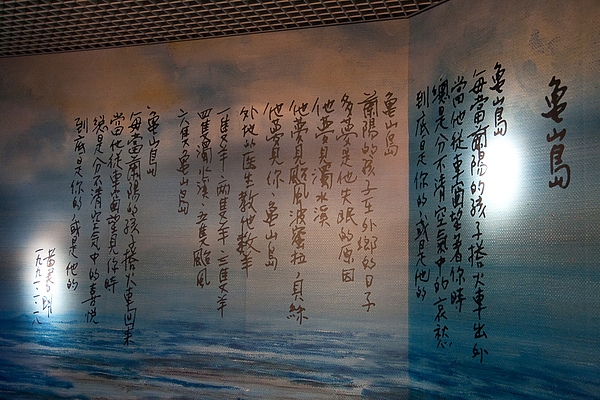 龜山島
龜山島
每當蘭陽的孩子搭火車出外
當他從車窗望著你時
總是分不清空氣中的哀愁
到底是你的,或是他的
龜山島
蘭陽的孩子在外鄉的日子
多夢是他失眠的原因
他夢見濁水溪
他夢見颱風波蜜拉,貝絲
他夢見你 龜山島
外地的医生教他數羊
一隻羊、兩隻羊、三隻羊
四隻濁水溪、五隻颱風
六隻龜山島
龜山島
每當蘭陽的孩子搭火車回來
當他從車窗望見你時
總是分不清空氣中的喜悅
到底是你的,或是他的
黃春明